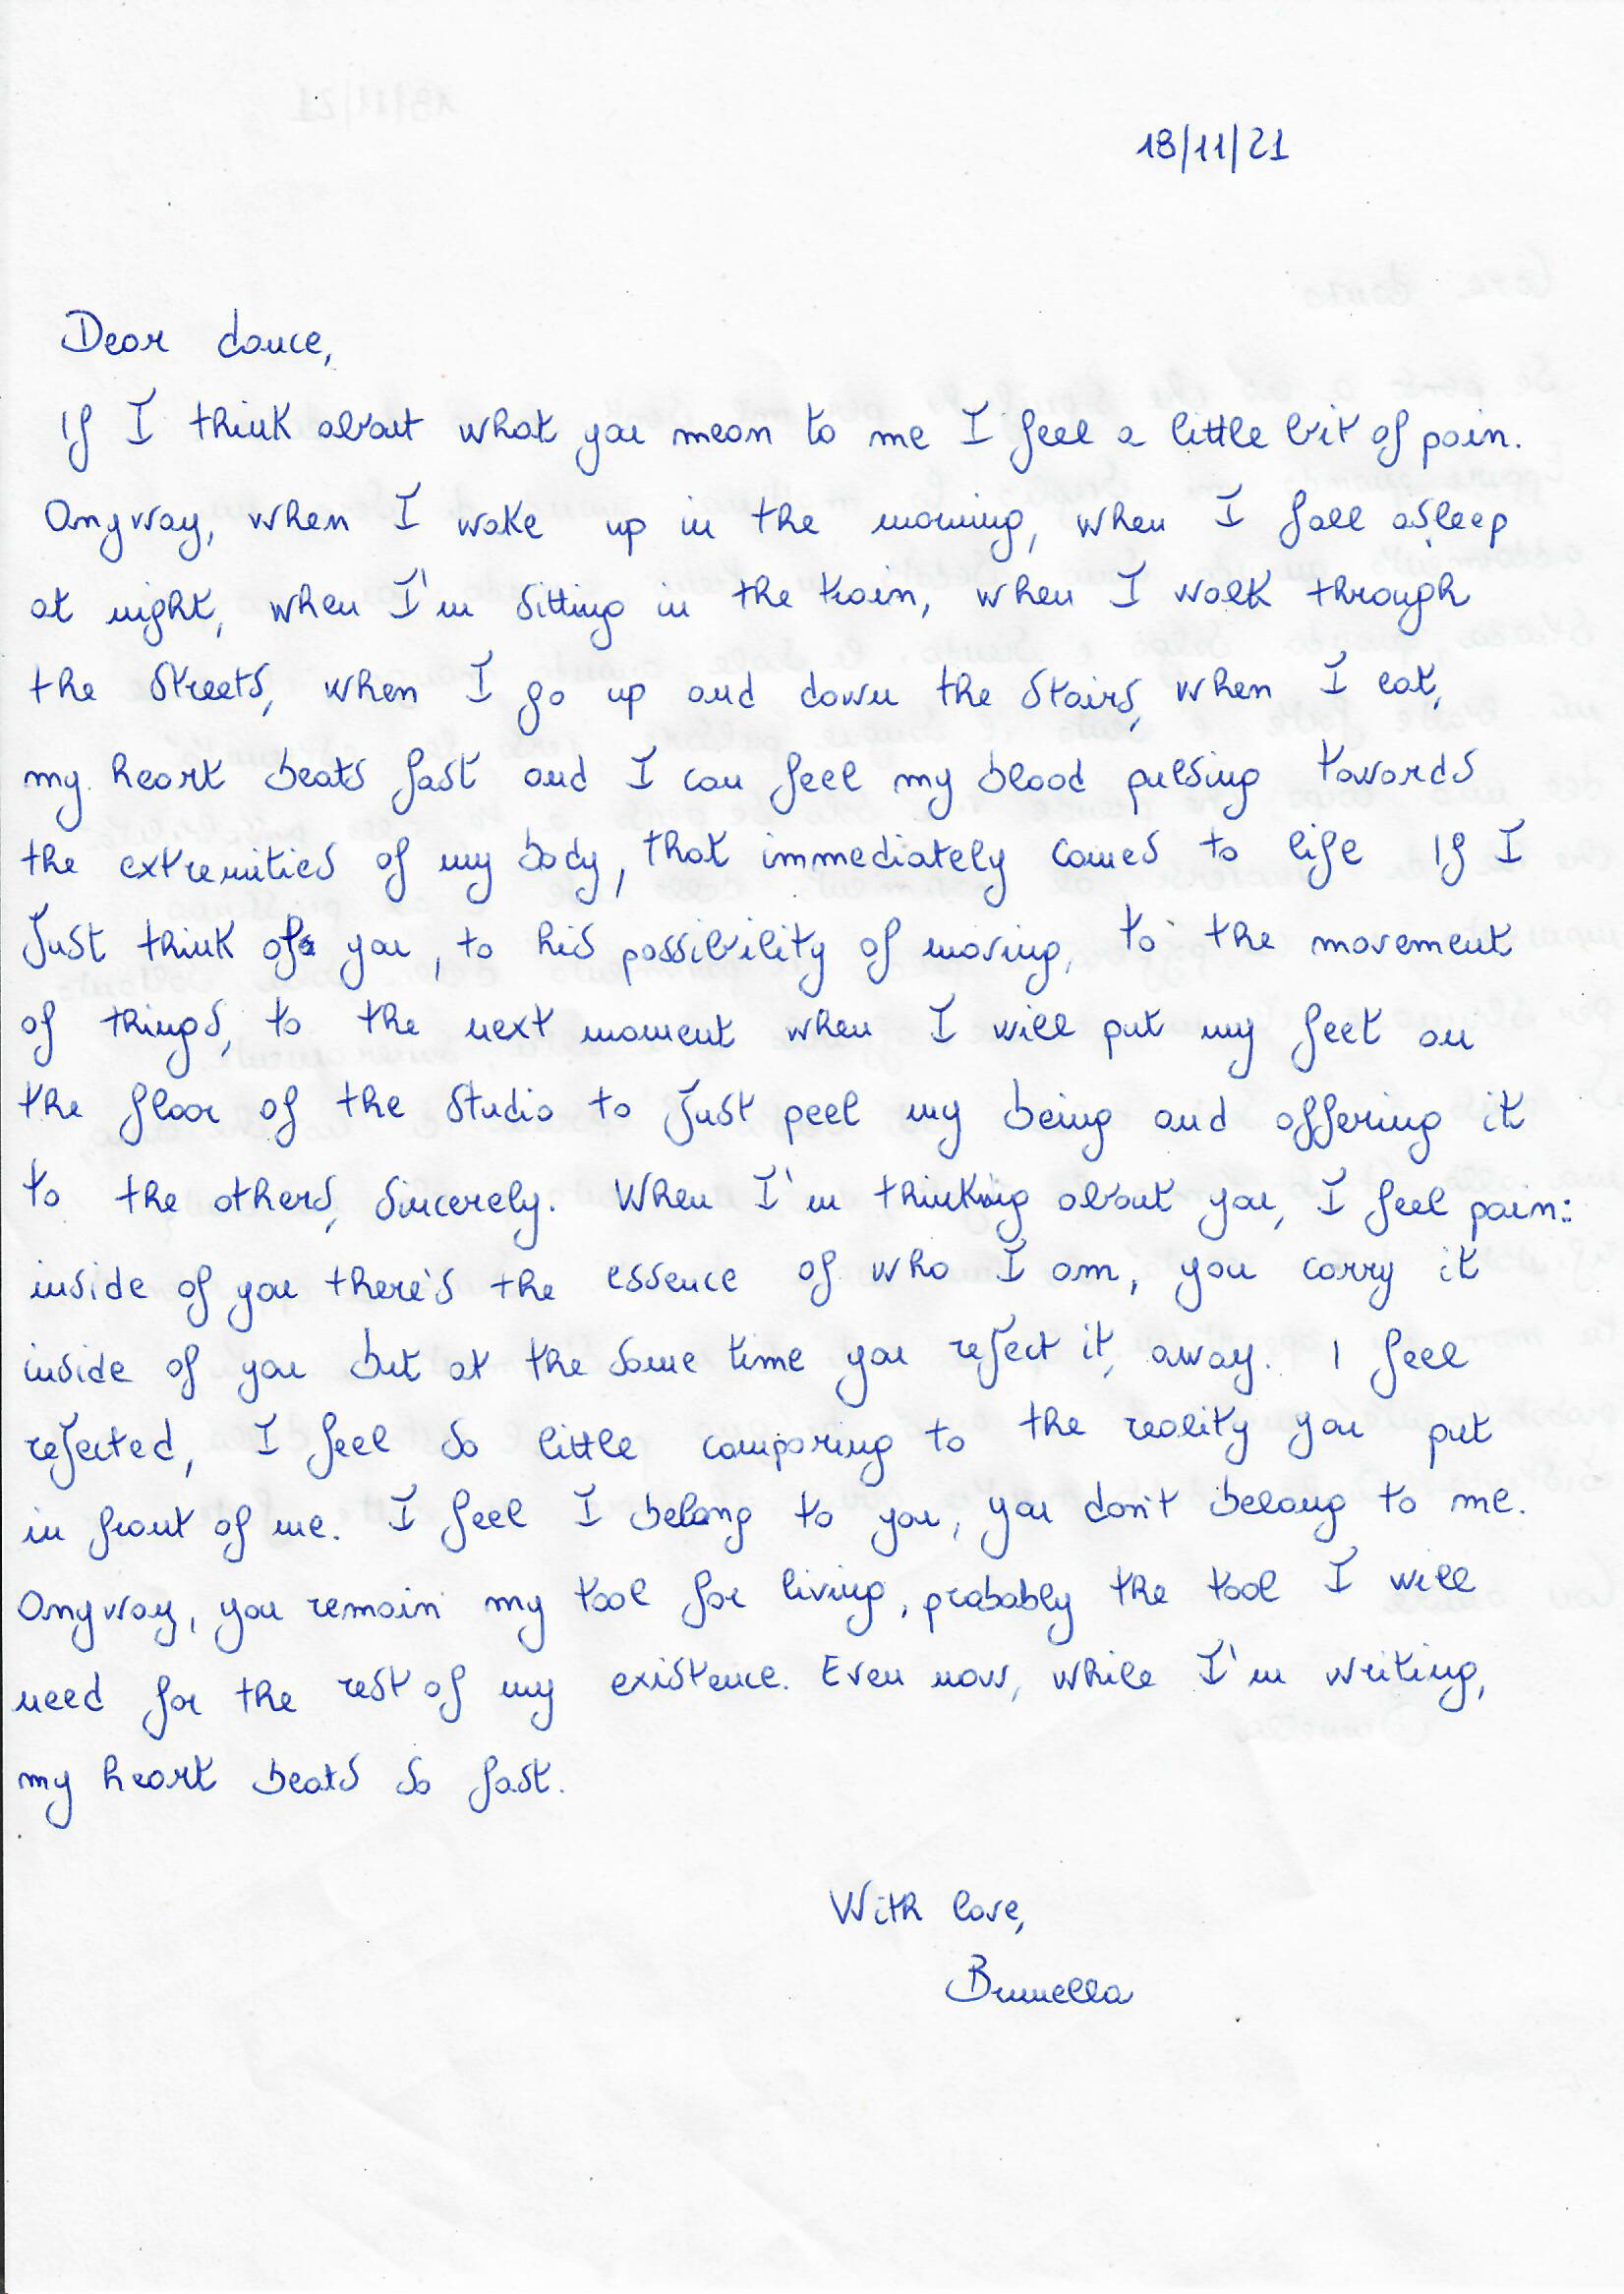 18/11/21
Dear dance,
If I think about what you mean to me I feel a little bit of pain.
Anyway, when I wake up in the morning, when I fall asleep
at night, when I'm sitting in the train, when I walk through
the streets, when I go up and down the stairs, when I eat,
my heart beats fast and I can feel my blood pulsing towards
the extremities of my body, that immediately comes to life If I
Just think of you, to his possibility of moving, to the movement
of things, to the next moment when I will put my feet on
the floor of the studio to Just peel my being and offering it
to the others, sincerely. When I'm thinking about you, I feel pain:
inside of you there's the essence of who I am, you carry it
inside of you but at the same time you reject it, away. I feel
rejected, I feel so little comparing to the reality you put
in front of me. I feel I belong to you, you don't belong to me.
Anyway, you remain my tool for living, probably the tool I will
need for the rest of my existence. Even now, while I'm writing,
my heart beats so fast.
With love,
Brunella